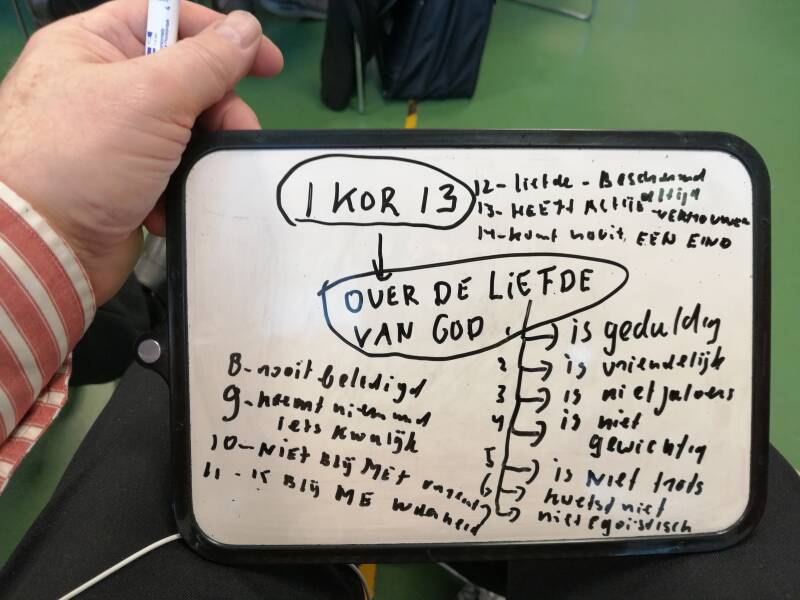 1 KOR 13
OVER DE LIEFDE
VAN GOD
1 is geduldig
2 is vriendelijk
3 is niet jaloers
4 is niet
gewichtig
5 is NIET trots
6 kwetst niet
7 niet egoïstisch
8- nooit beledigd
9- neemt niemand
iets kwalijk
10- NIET BLIJ MET
11 - is BLIJ ME waarheid
12- liefde - Beschermd
altijd
13- HEEFT ALTIJD VERTROUWEN
14- komt nooit EEN EIND